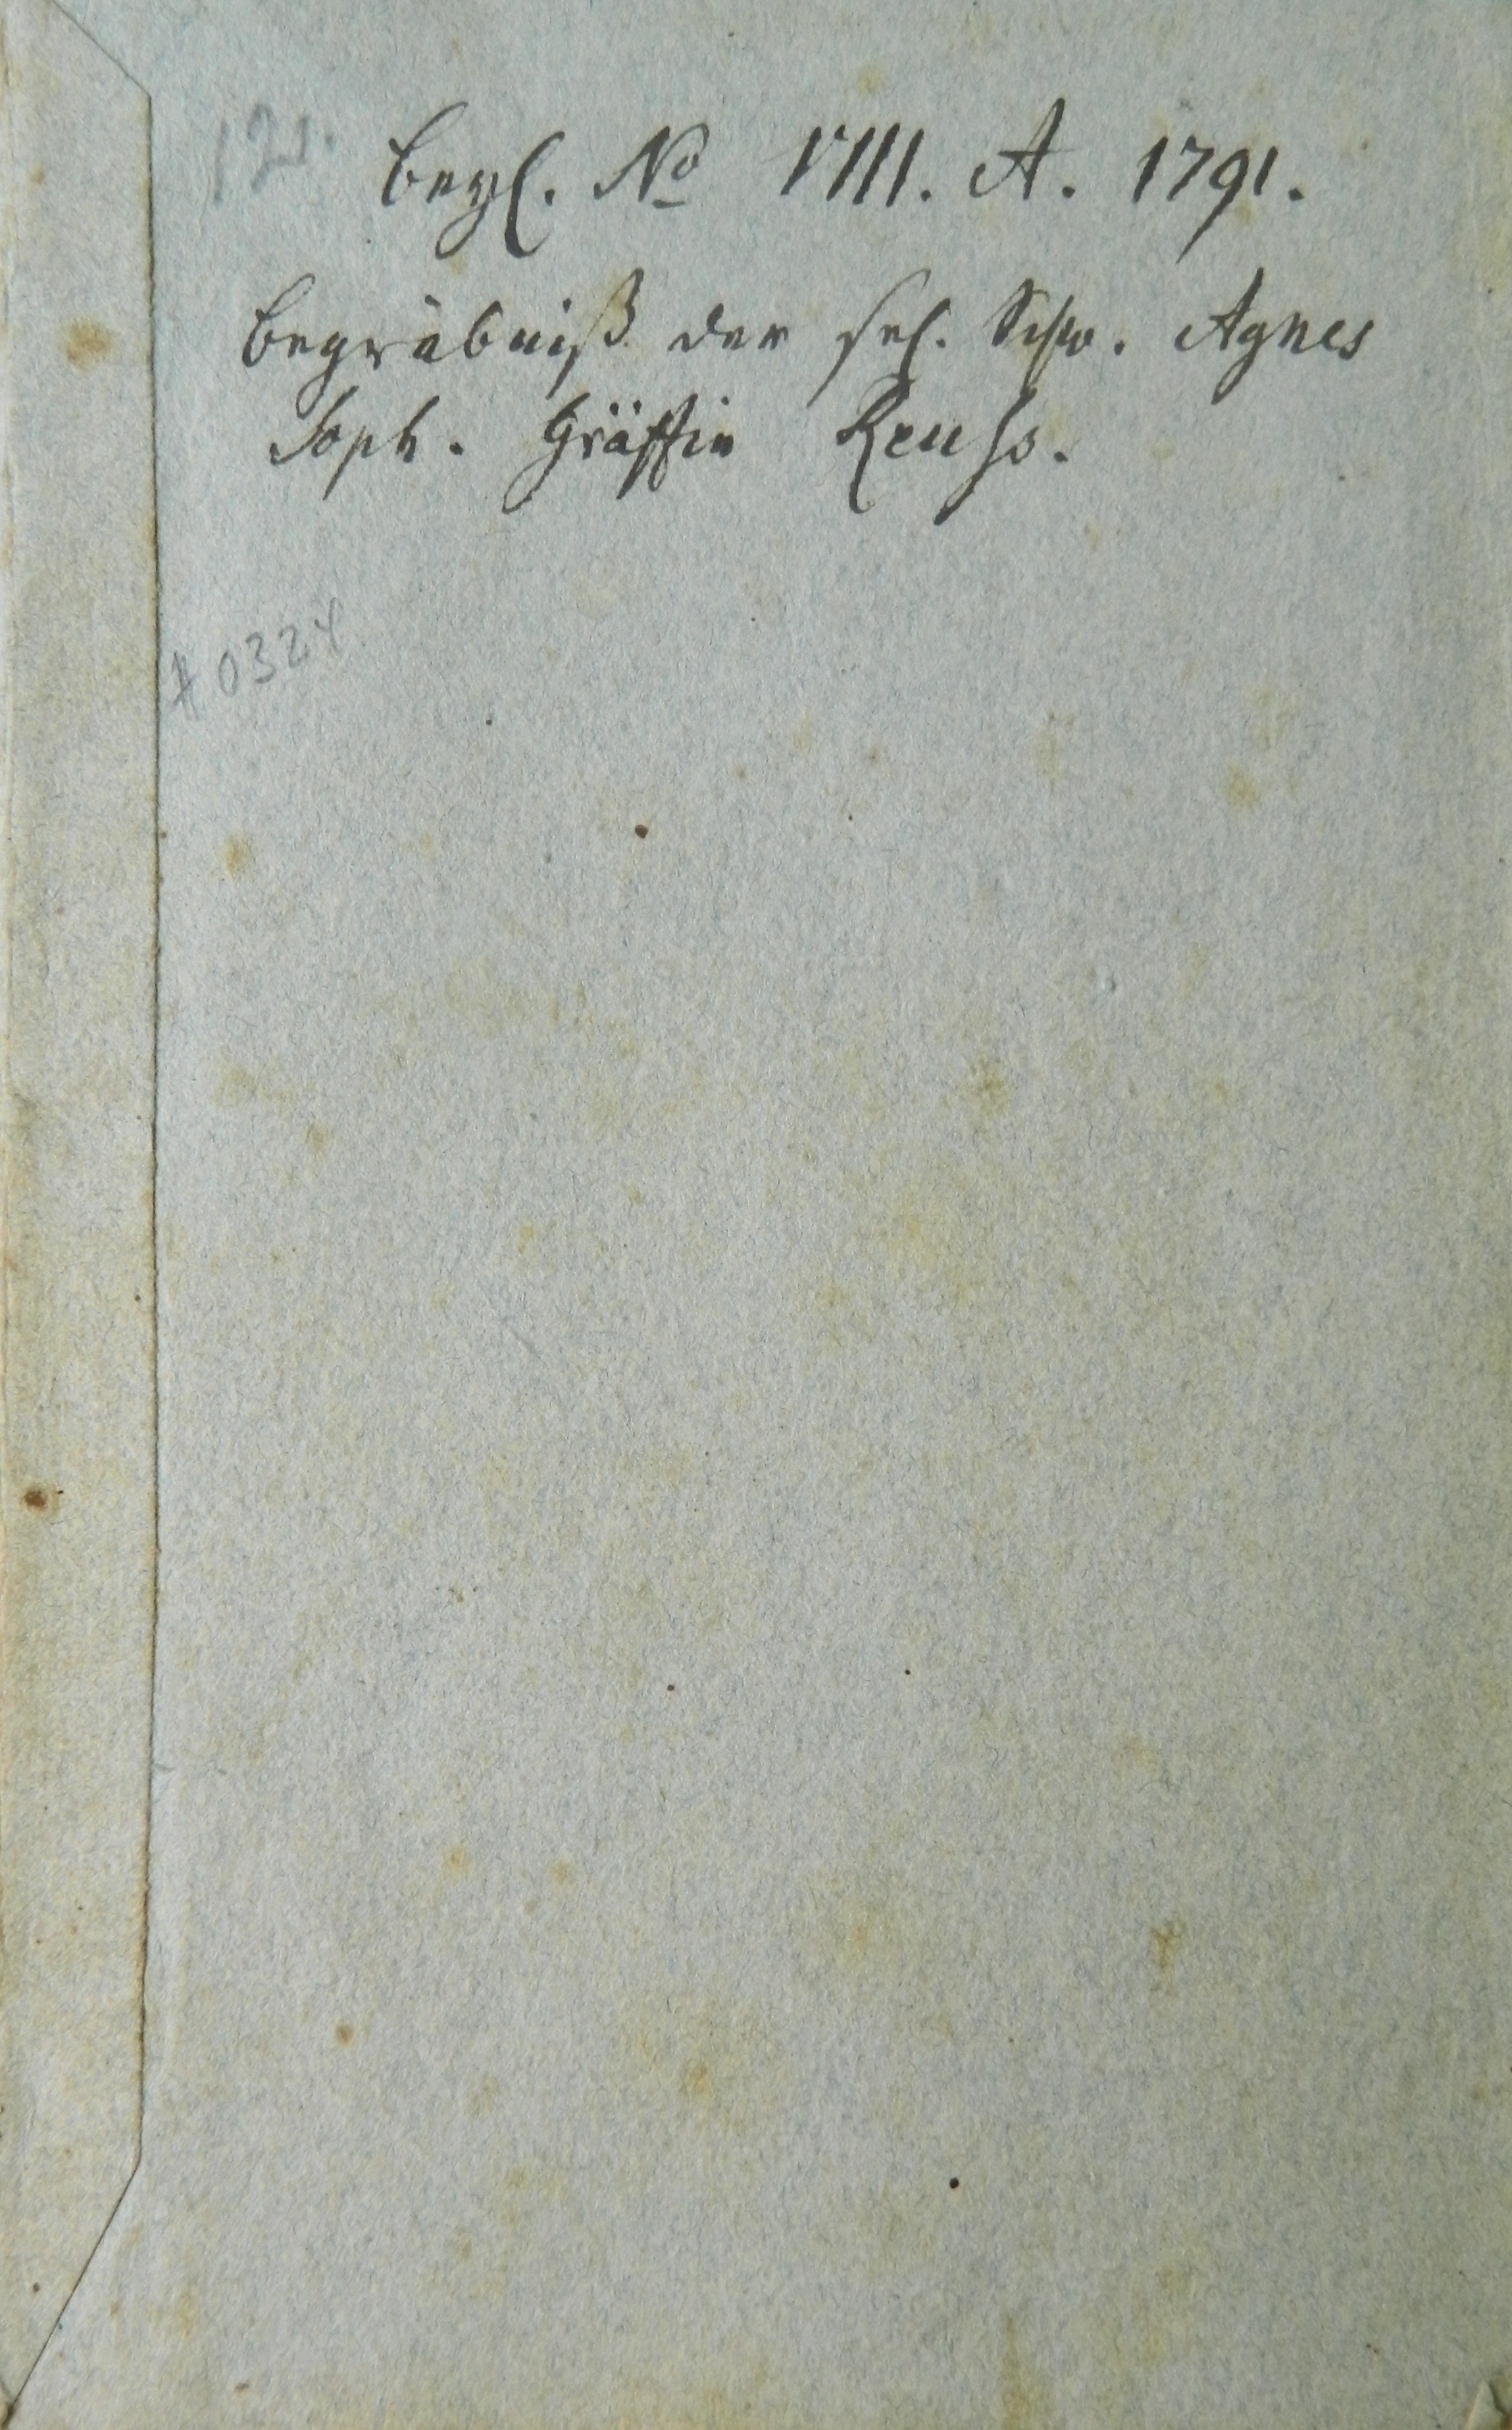 121.
Beyl. No VIII. A. 1791.
Begräbniß der sel. Schw. Agnes
Soph. Gräffin Reuss.
# 0324